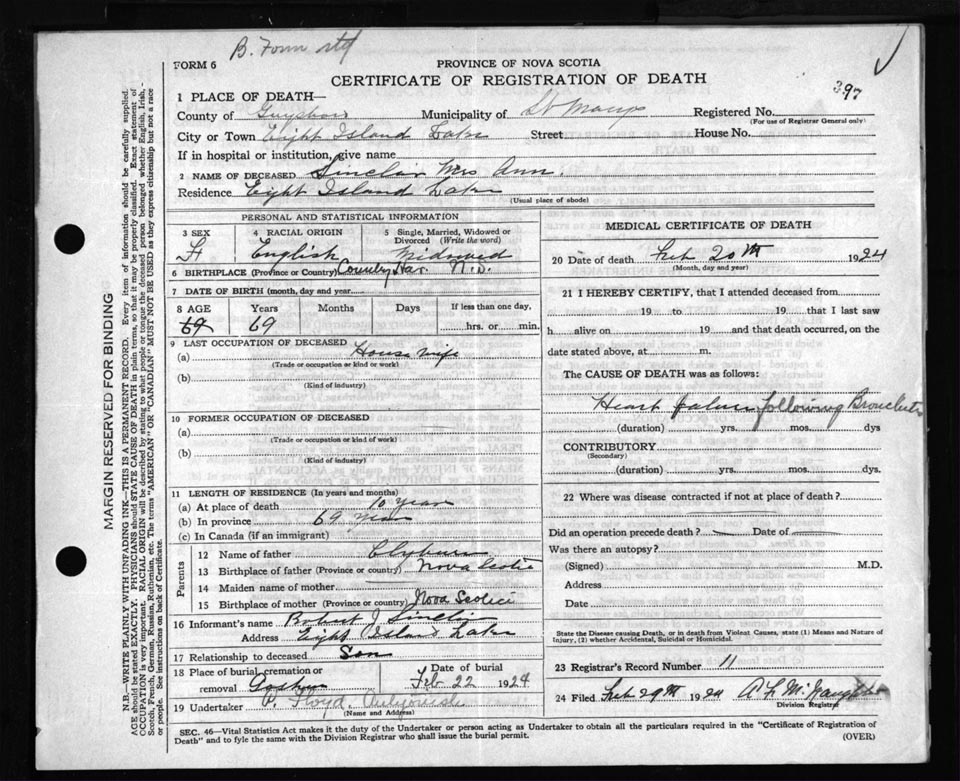 B. Form
FORM 6
PROVINCE OF NOVA SCOTIA
CERTIFICATE OF REGISTRATION OF DEATH
397
1 PLACE OF DEATH—
County of Guysboro Municipality of St Marys Registered No.
(For use of Registrar General only)
City or Town Eight Island Lake Street House No.
If in hospital or institution, give name
2 NAME OF DECEASED Sinclair Mrs Ann.
Residence Eight Island Lake
(Usual place of abode)
PERSONAL AND STATISTICAL INFORMATION
3 SEX F
4 RACIAL ORIGIN English
5 Single, Married, Widowed or Divorced (Write the word) Widowed
6 BIRTHPLACE (Province or Country) Country Har. N.S.
7 DATE OF BIRTH (month, day and year)
8 AGE Years Months Days If less than one day,
69 69 hrs. or min.
9 LAST OCCUPATION OF DECEASED
(a) House wife
(Trade or occupation or kind or work)
(b)
(Kind of industry)
10 FORMER OCCUPATION OF DECEASED
(a)
(Trade or occupation or kind of work)
(b)
(Kind of industry)
11 LENGTH OF RESIDENCE (In years and months)
(a) At place of death 10 years
(b) In province 69 years
(c) In Canada (if an immigrant)
Parents
12 Name of father Clyburn
13 Birthplace of father (Province or country) Nova Scotia
14 Maiden name of mother
15 Birthplace of mother (Province or country) Nova Scotia
16 Informant's name Robert J Sinclair
Address Eight Island Lake
17 Relationship to deceased Son
18 Place of burial, cremation or removal Goshen
Date of burial Feb 22 1924
19 Undertaker Floyd Antigonish
(Name and Address)
MEDICAL CERTIFICATE OF DEATH
20 Date of death Feb 20th 1924
(Month, day and year)
21 I HEREBY CERTIFY, that I attended deceased from
19 to 19 that I last saw
h alive on 19 and that death occurred, on the
date stated above, at m.
The CAUSE OF DEATH was as follows:
Heart failure following Bronchitis
(duration) yrs. mos. dys
CONTRIBUTORY
(Secondary)
(duration) yrs. mos. dys.
22 Where was disease contracted if not at place of death?
Did an operation precede death? Date of
Was there an autopsy?
(Signed) M.D.
Address
Date
State the Disease causing Death, or in death from Violent Causes, state (1) Means and Nature of
Injury, (2) whether Accidental, Suicidal or Homicidal.
23 Registrar's Record Number 11
24 Filed Feb 29th 1924 A. L. McNaughton
Division Registrar
SEC. 46—Vital Statistics Act makes it the duty of the Undertaker or person acting as Undertaker to obtain all the particulars required in the "Certificate of Registration of
Death" and to fyle the same with the Division Registrar who shall issue the burial permit.
(OVER)
MARGIN RESERVED FOR BINDING
N.B.—WRITE PLAINLY WITH UNFADING INK—THIS IS A PERMANENT RECORD. Every item of information should be carefully supplied.
AGE should be stated EXACTLY. PHYSICIANS should STATE CAUSE OF DEATH in plain terms, so that it may be properly classified. Exact statement of
OCCUPATION is very important. RACIAL ORIGIN will be described by stating to what people or tongue the deceased person belonged whether English, Irish,
Scotch, French, German, Russian, Ruthenian, etc. The terms "AMERICAN" or "CANADIAN" MUST NOT BE USED as they express citizenship but not a race
or people. See instructions on back of Certificate.